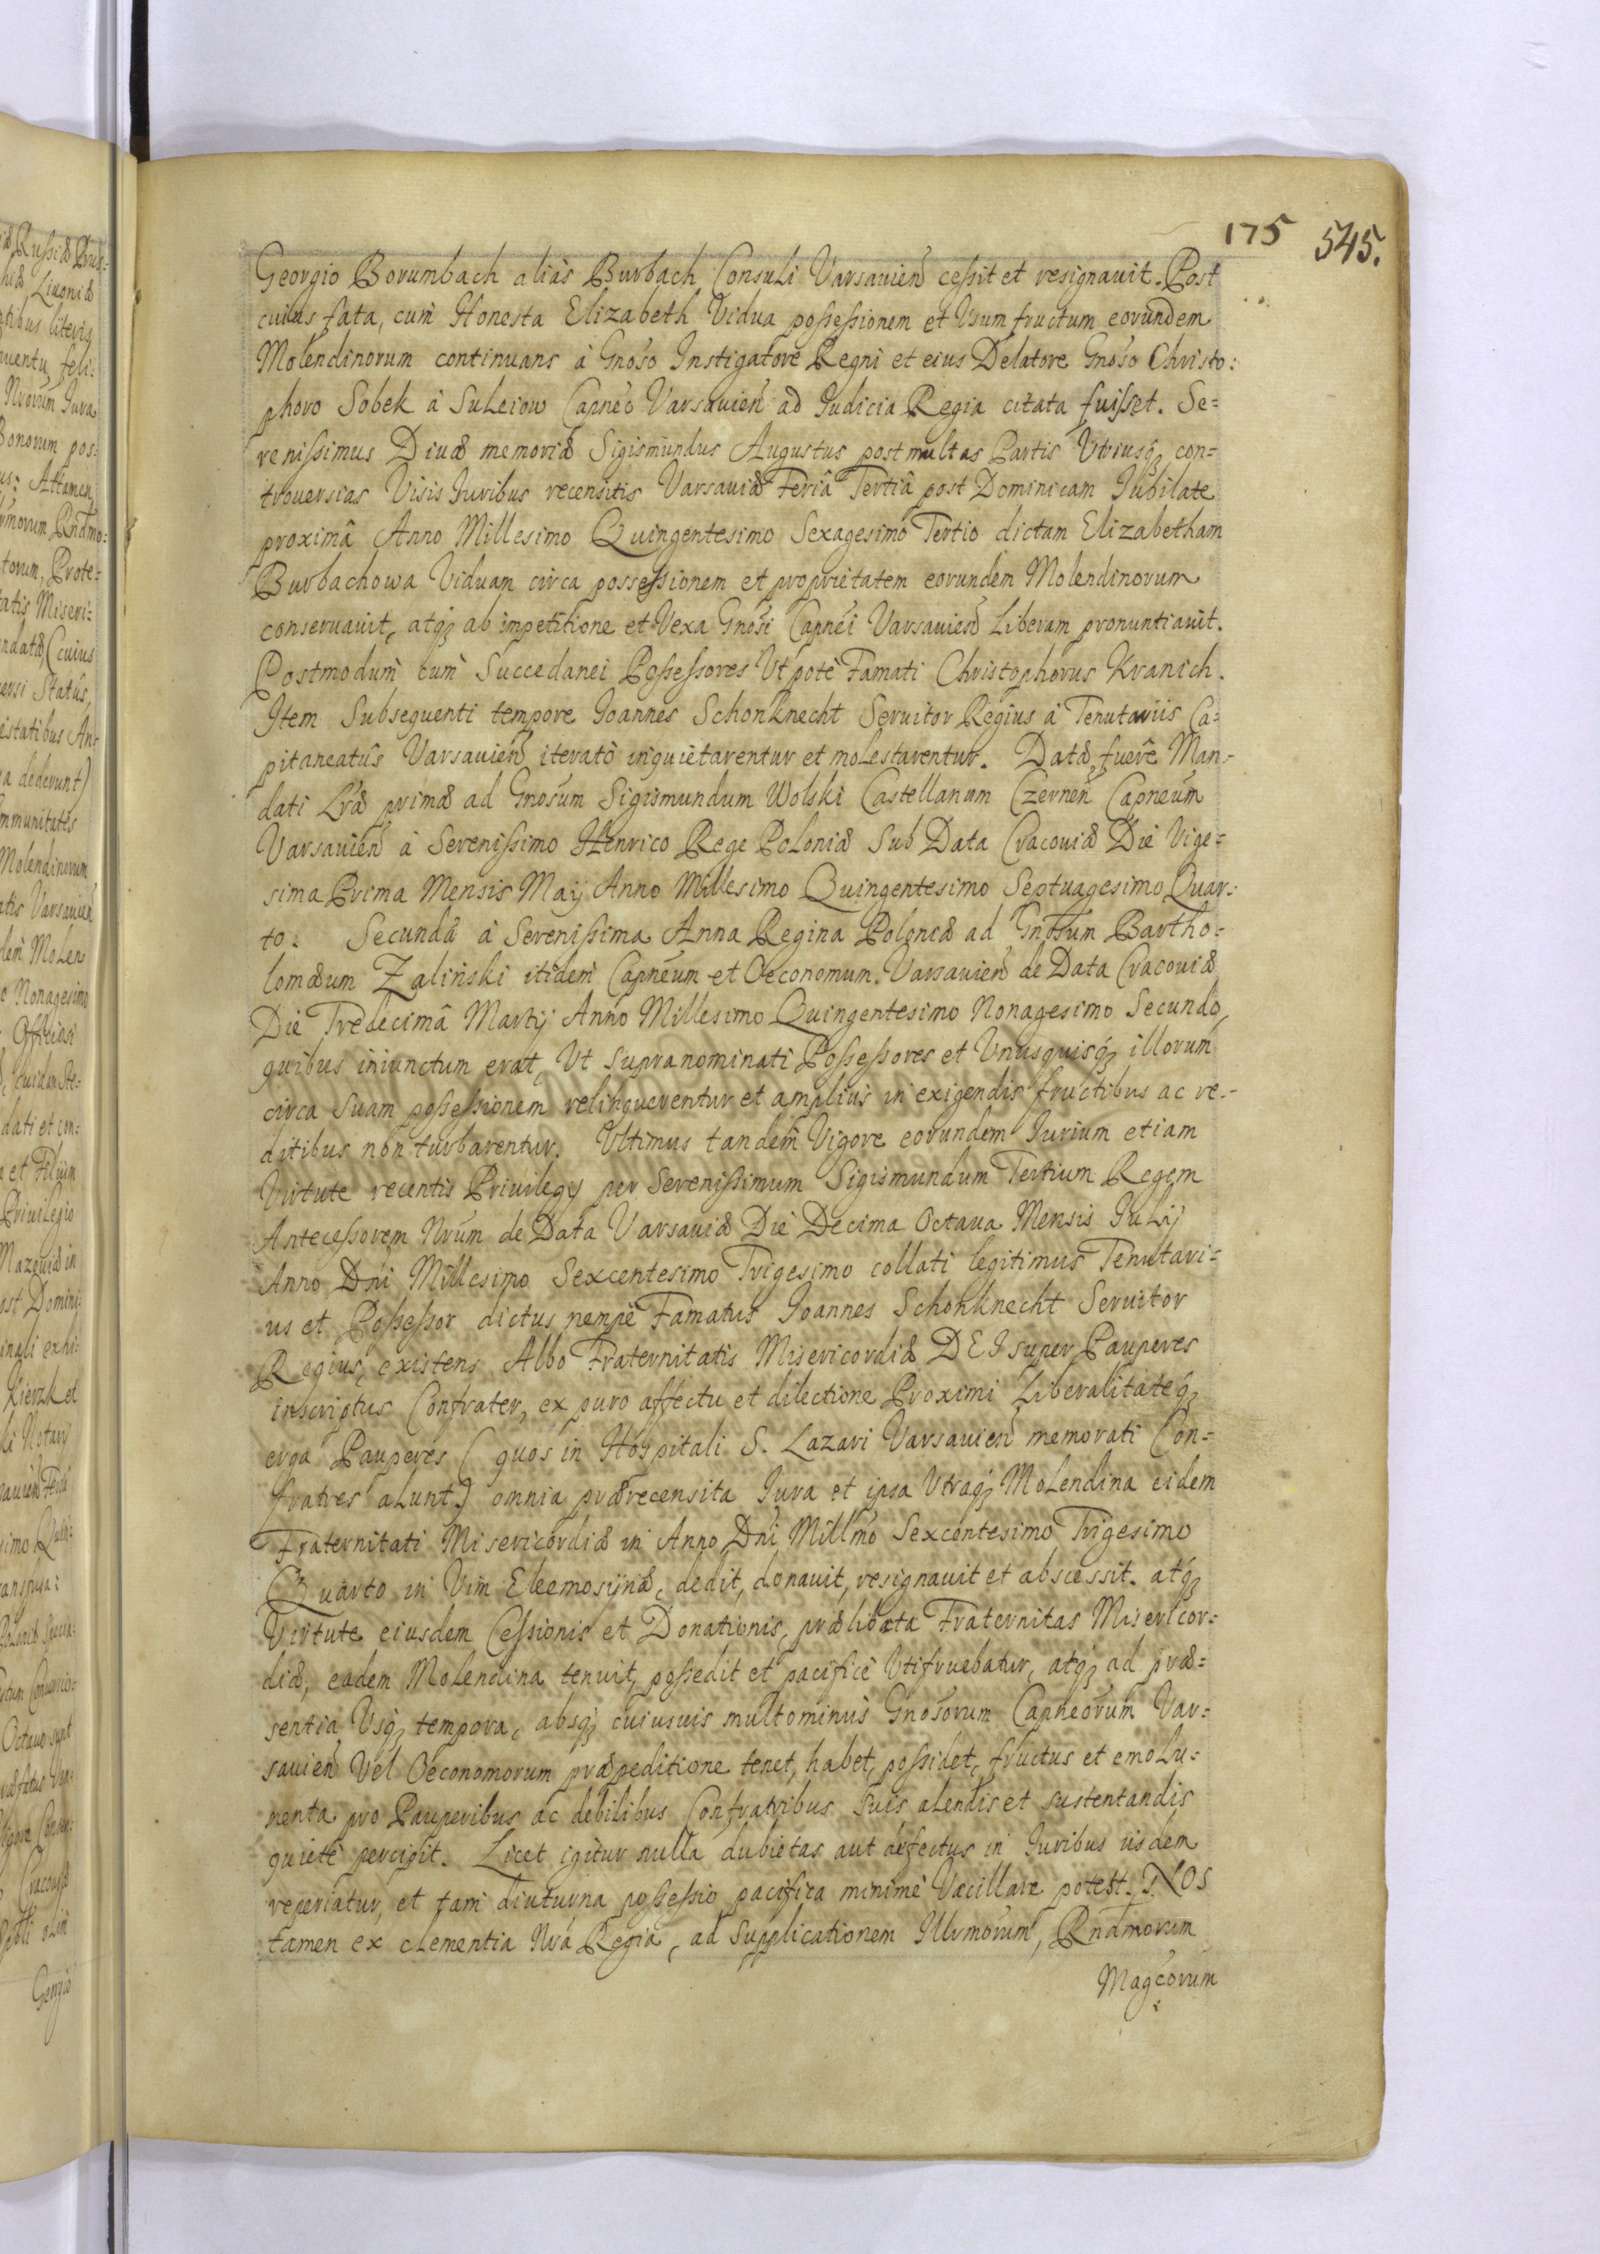 175 545.
Georgio Borumbach aliàs Burbach Consuli Varsauien̄ ceſsit et resignauit. Post
cuius fata, cum̀ Honesta Elizabeth Vidua poſseſsionem et Vsum fructum eorundem
Molendinorum continuans à Gnōso Instigatore Regni et eius Delatore Gnōso Christo:
phoro Sobek à Suleiow Capnēo Varsauien̄ ad Iudicia Regia citata fuiſset. Se=
reniſsimus Diuæ memoriæ Sigismundus Augustus post multas Partis Vtriusq́ con=
trouersias Visis Iuribus recensitis Varsauiæ Feriâ Tertiâ post Dominicam Iubilate
proximâ Anno Millesimo Quingentesimo Sexagesimo Tertio dictam Elizabetham
Burbachowa Viduam circa posseſsionem et proprietatem eorundem Molendinorum
conseruauit, atq́ ab impetitione et Vexa Gnōsi Capnēi Varsauien̄ Liberam pronuntiauit.
Postmodum̀ cum̀ Succedanei Poſseſsores Vt pote Famati Christophorus Kranich.
Item Subsequenti tempore Ioannes Schonknecht Seruitor Regius à Tenutariis Ca=
pitaneatûs Varsauien̄ iteratò inquietarentur et molestarentur. Datæ fuere Man=
dati Lr̄æ primæ ad Gnōsum Sigismundum Wolski Castellanum Czernen̄ Capnēum
Varsauien̄ à Sereniſsimo Henrico Rege Poloniæ Sub Data Cracouiæ Die Vige=
sima Prima Mensis Maij Anno Millesimo Quingentesimo Septuagesimo Quar:
to. Secundæ à Sereniſsima Anna Regina Poloniæ ad Gnōsum Bartho=
lomæum Zaliński itidem̀ Capnēum et Oeconomum Varsauien̄ de Data Cracouiæ
Die Tredecimâ Martij Anno Millesimo Quingentesimo Nonagesimo Secundo,
quibus iniunctum erat, Vt supranominati Poſseſsores et Vnusquisq́ illorum
circa suam poſseſsionem relinquerentur et amplius in exigendis fructibus ac re=
ditibus non turbarentur. Vltimus tandem̀ Vigore eorundem Iurium etiam
Virtute recentis Priuilegij per Sereniſsimum Sigismundum Tertium Regem
Anteceſsorem Nr̄um de Data Varsauiæ Die Decima Octaua Mensis Iulij
Anno Dn̄i Millesimo Sexcentesimo Trigesimo collati legitimus Tenutari=
us et Poſseſsor dictus nempe Famatus Ioannes Schonknecht Seruitor
Regius, existens Albo Fraternitatis Misericordiæ DEI super Pauperes
inscriptus Confrater, ex puro affectu et dilectione Proximi Liberalitateq́
erga Pauperes (quos in Hospitali S. Lazari Varsauien̄ memorati Con=
fratres alunt) omnia prærecensita Iura et ipsa Vtraq́ Molendina eidem
Fraternitati Misericordiæ in Anno Dn̄i Millm̄o Sexcentesimo Trigesimo
Quarto in Vim Eleemosijnæ, dedit, donauit, resignauit et abscessit. atq́
Virtute eiusdem Ceſsionis et Donationis, prælibata Fraternitas Misericor=
diæ, eadem Molendina tenuit, poſsedit et pacificè Vtifruebatur, atq́ ad præ=
sentia Vsq́ tempora, absq́ cuiusuis multominus Gnōsorum Capneōrum Var=
sauien̄ Vel Oeconomorum præpeditione tenet, habet, poſsidet, fructus et emolu=
menta pro Pauperibus ac debilibus Confratribus suis alendis et sustentandis
quiete percipit. Licet igitur nulla dubietas aut defectus in Iuribus iisdem
reperiatur, et tam diuturna poſseſsio pacifica minimè Vacillare potest. NOS
tamen ex clementia Nr̄a Regia, ad supplicationem Illrm̄orum, Rnd̄morum
Magc̄orum